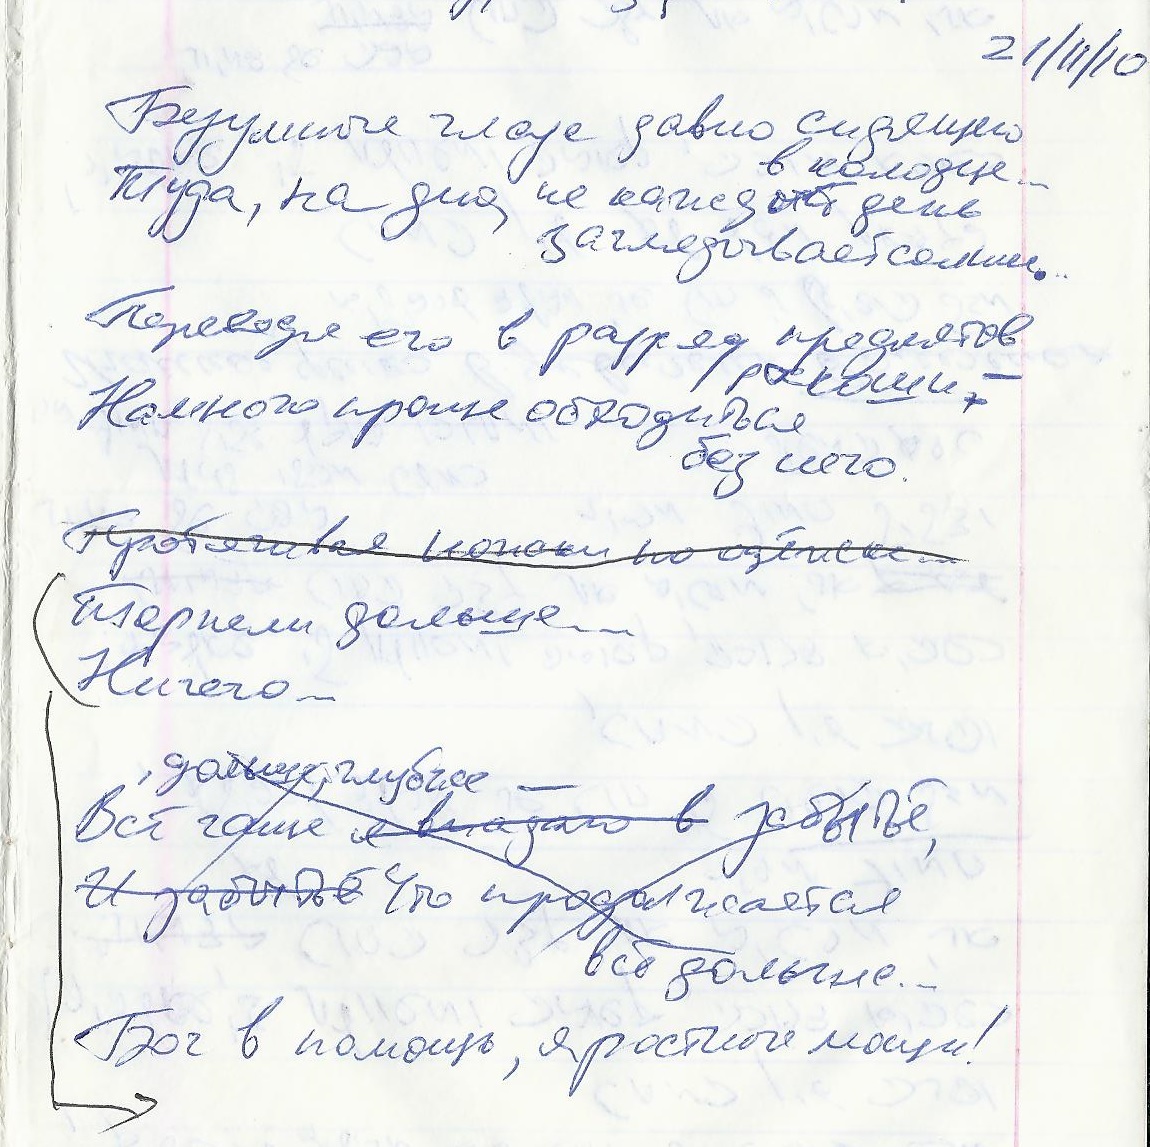 21/11/10
Безумные глаза давно сидящего
в колодце...
Туда, на дно, не каждый день
заглядывает солнце...
Переводя его в разряд предметов
роскоши, –
Намного проще обходиться
без него.
Терпели дольше...
Ничего...
, дольше, глубже —
Всё чаще я впадаю в забытьё,
И забытьё Что продолжается
всё дольше...
Бог в помощь, яростные мощи!